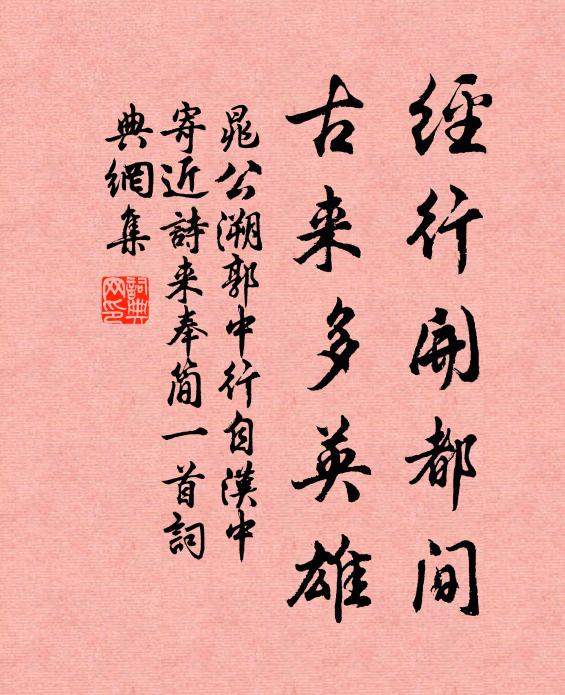 經行開都間
古来多英雄
晁公溯郭中行自漢中
寄近詩来奉简一首詞
典網集
詞典网印